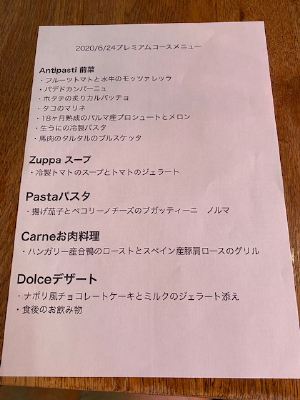 2020/6/24プレミアムコースメニュー
Antipasti 前菜
・フルーツトマトと水牛のモッツァレッラ
・パテドカンパーニュ
・ホタテの炙りカルパッチョ
・タコのマリネ
・18ヶ月熟成のパルマ産プロシュートとメロン
・生うにの冷製パスタ
・馬肉のタルタルのブルスケッタ
Zuppa スープ
・冷製トマトのスープとトマトのジェラート
Pastaパスタ
・揚げ茄子とペコリーノチーズのブガッティーニ　ノルマ
Carneお肉料理
・ハンガリー産合鴨のローストとスペイン産豚肩ロースのグリル
Dolceデザート
・ナポリ風チョコレートケーキとミルクのジェラート添え
・食後のお飲み物